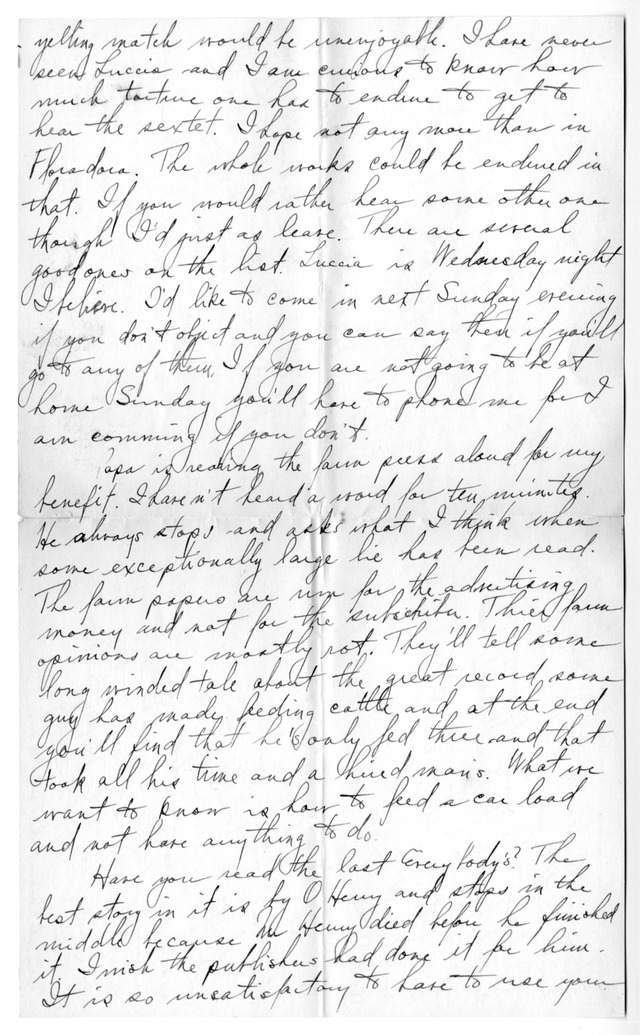 yelling match would be unenjoyable. I have never
seen Luccia and I am curious to know how
much torture one has to endure to get to
hear the sextet. I hope not any more than in
Floradora. The whole works could be endured in
that. If you would rather hear some other one
though I'd just as leave. There are several
good ones on the list. Luccia is Wednesday night
I believe. I'd like to come in next Sunday evening
if you don't object and you can say then if you'll
go to any of them. If you are not going to be at
home Sunday you'll have to phone me for I
am comming if you don't.
Papa is reading the farm press aloud for my
benefit. I haven't heard a word for ten minutes.
He always stops and asks what I think when
some exceptionally large lie has been read.
The farm papers are run for the advertising
money and not for the subscriber. Thier farm
opinions are mostly rot. They'll tell some
long winded tale about the great record some
guy has made feeding cattle and at the end
you'll find that he's only fed three and that
took all his time and a hired man's. What we
want to know is how to feed a car load
and not have anything to do.
Have you read the last Everybody's? The
best story in it is by O Henry and stops in the
middle because Mr Henry died before he finished
it. I wish the publishers had done it for him.
It is so unsatisfactory to have to use your